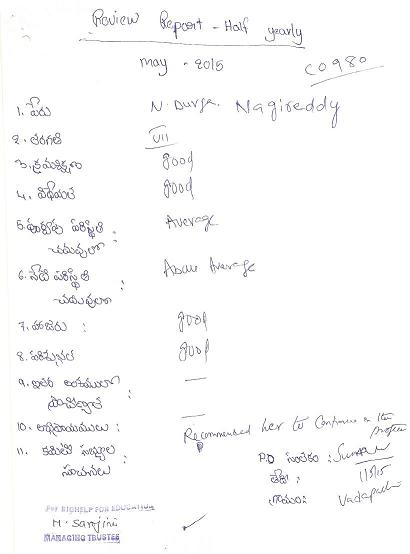 Review Report - Half yearly
May - 2015
C0980
1. పేరు N. Durga Nagireddy
2. తరగతి VII
3. క్రమశిక్షణ good
4. విధేయత good
5. పూర్వపు పరిస్థితి Average
చదువులో :
6. నేటి పరిస్థితి Above Average
చదువులో :
7. హాజరు : good
8. పరిశుభ్రత good
9. ఇతర అంశములలో —
10. అభిప్రాయములు : —
11. కమిటి సభ్యుల Recommended her to Continue in the
సూచనలు :
P.D సంతకం :
తేది : 1/5/15
గ్రామం :
For BIGHELP FOR EDUCATION
M. Sarojini
MANAGING TRUSTEE